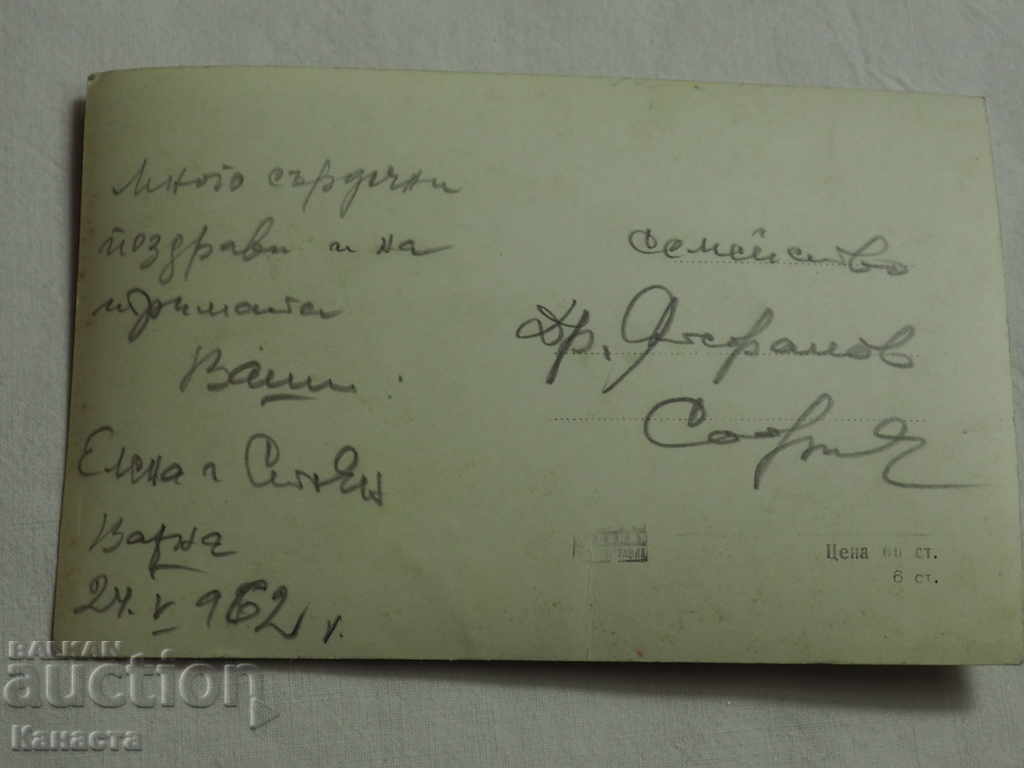 Много сърдечни
поздрави и на
Ваши.
Елена и Стоян
Варна
24. V 962 г.
семейство
Др.
София
Цена 60 ст.
6 ст.
BALKAN
auction
Канаста